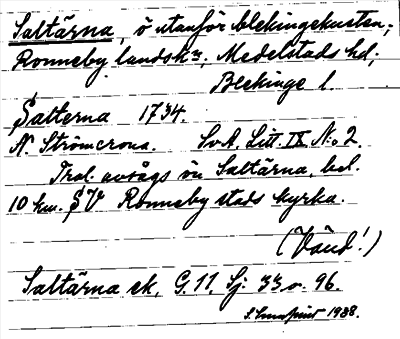 Saltärna, ö utanför blekingekusten;
Ronneby landskn, Medelstads hd;
Blekinge l.
Salterna 1734.
N. Strömcrona. SvA. Litt. IX No 2
Trol. avsågs ön Saltärna, bel.
10 km. SV Ronneby stads kyrka.
(Vänd!)
Saltärna ek. G. 11, Sj: 33 o. 96.
1938.